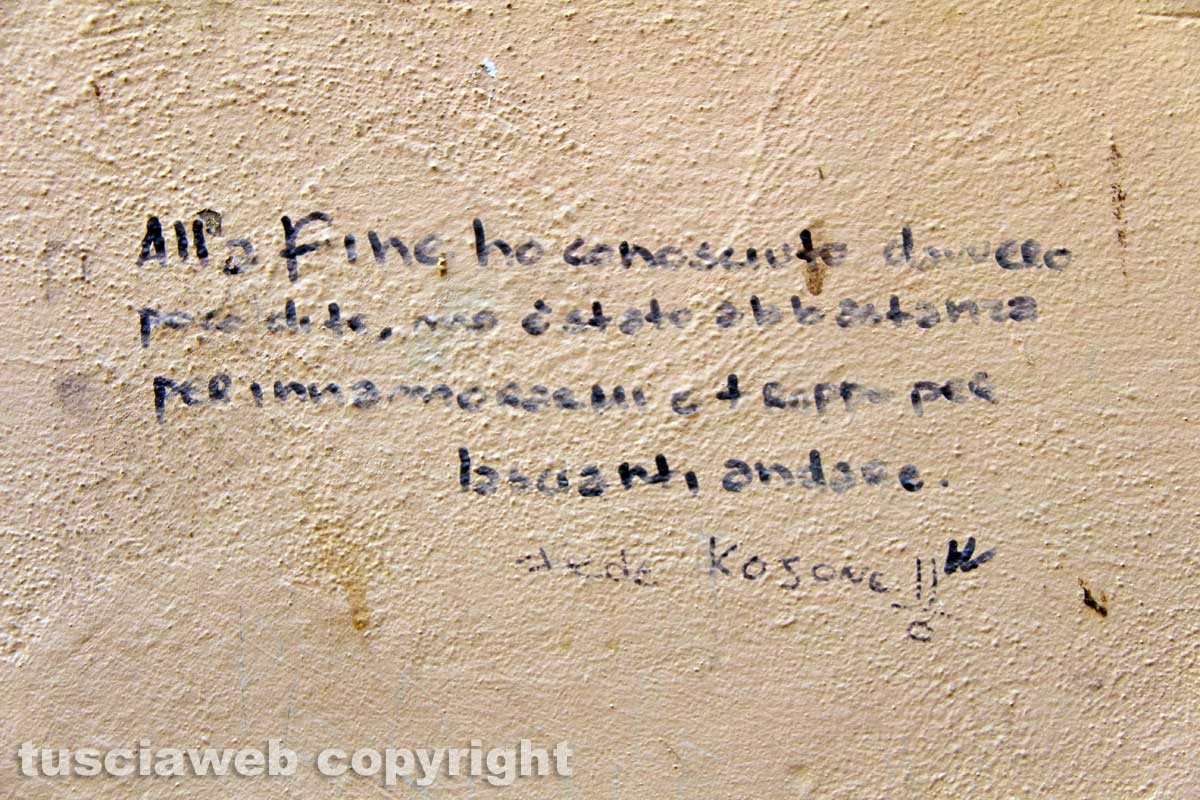 Alla Fine, ho conosciuto davvero
poco di te, ma è stato abbastanza
per innamorarmi e troppo per
lasciarti andare.
tusciaweb copyright